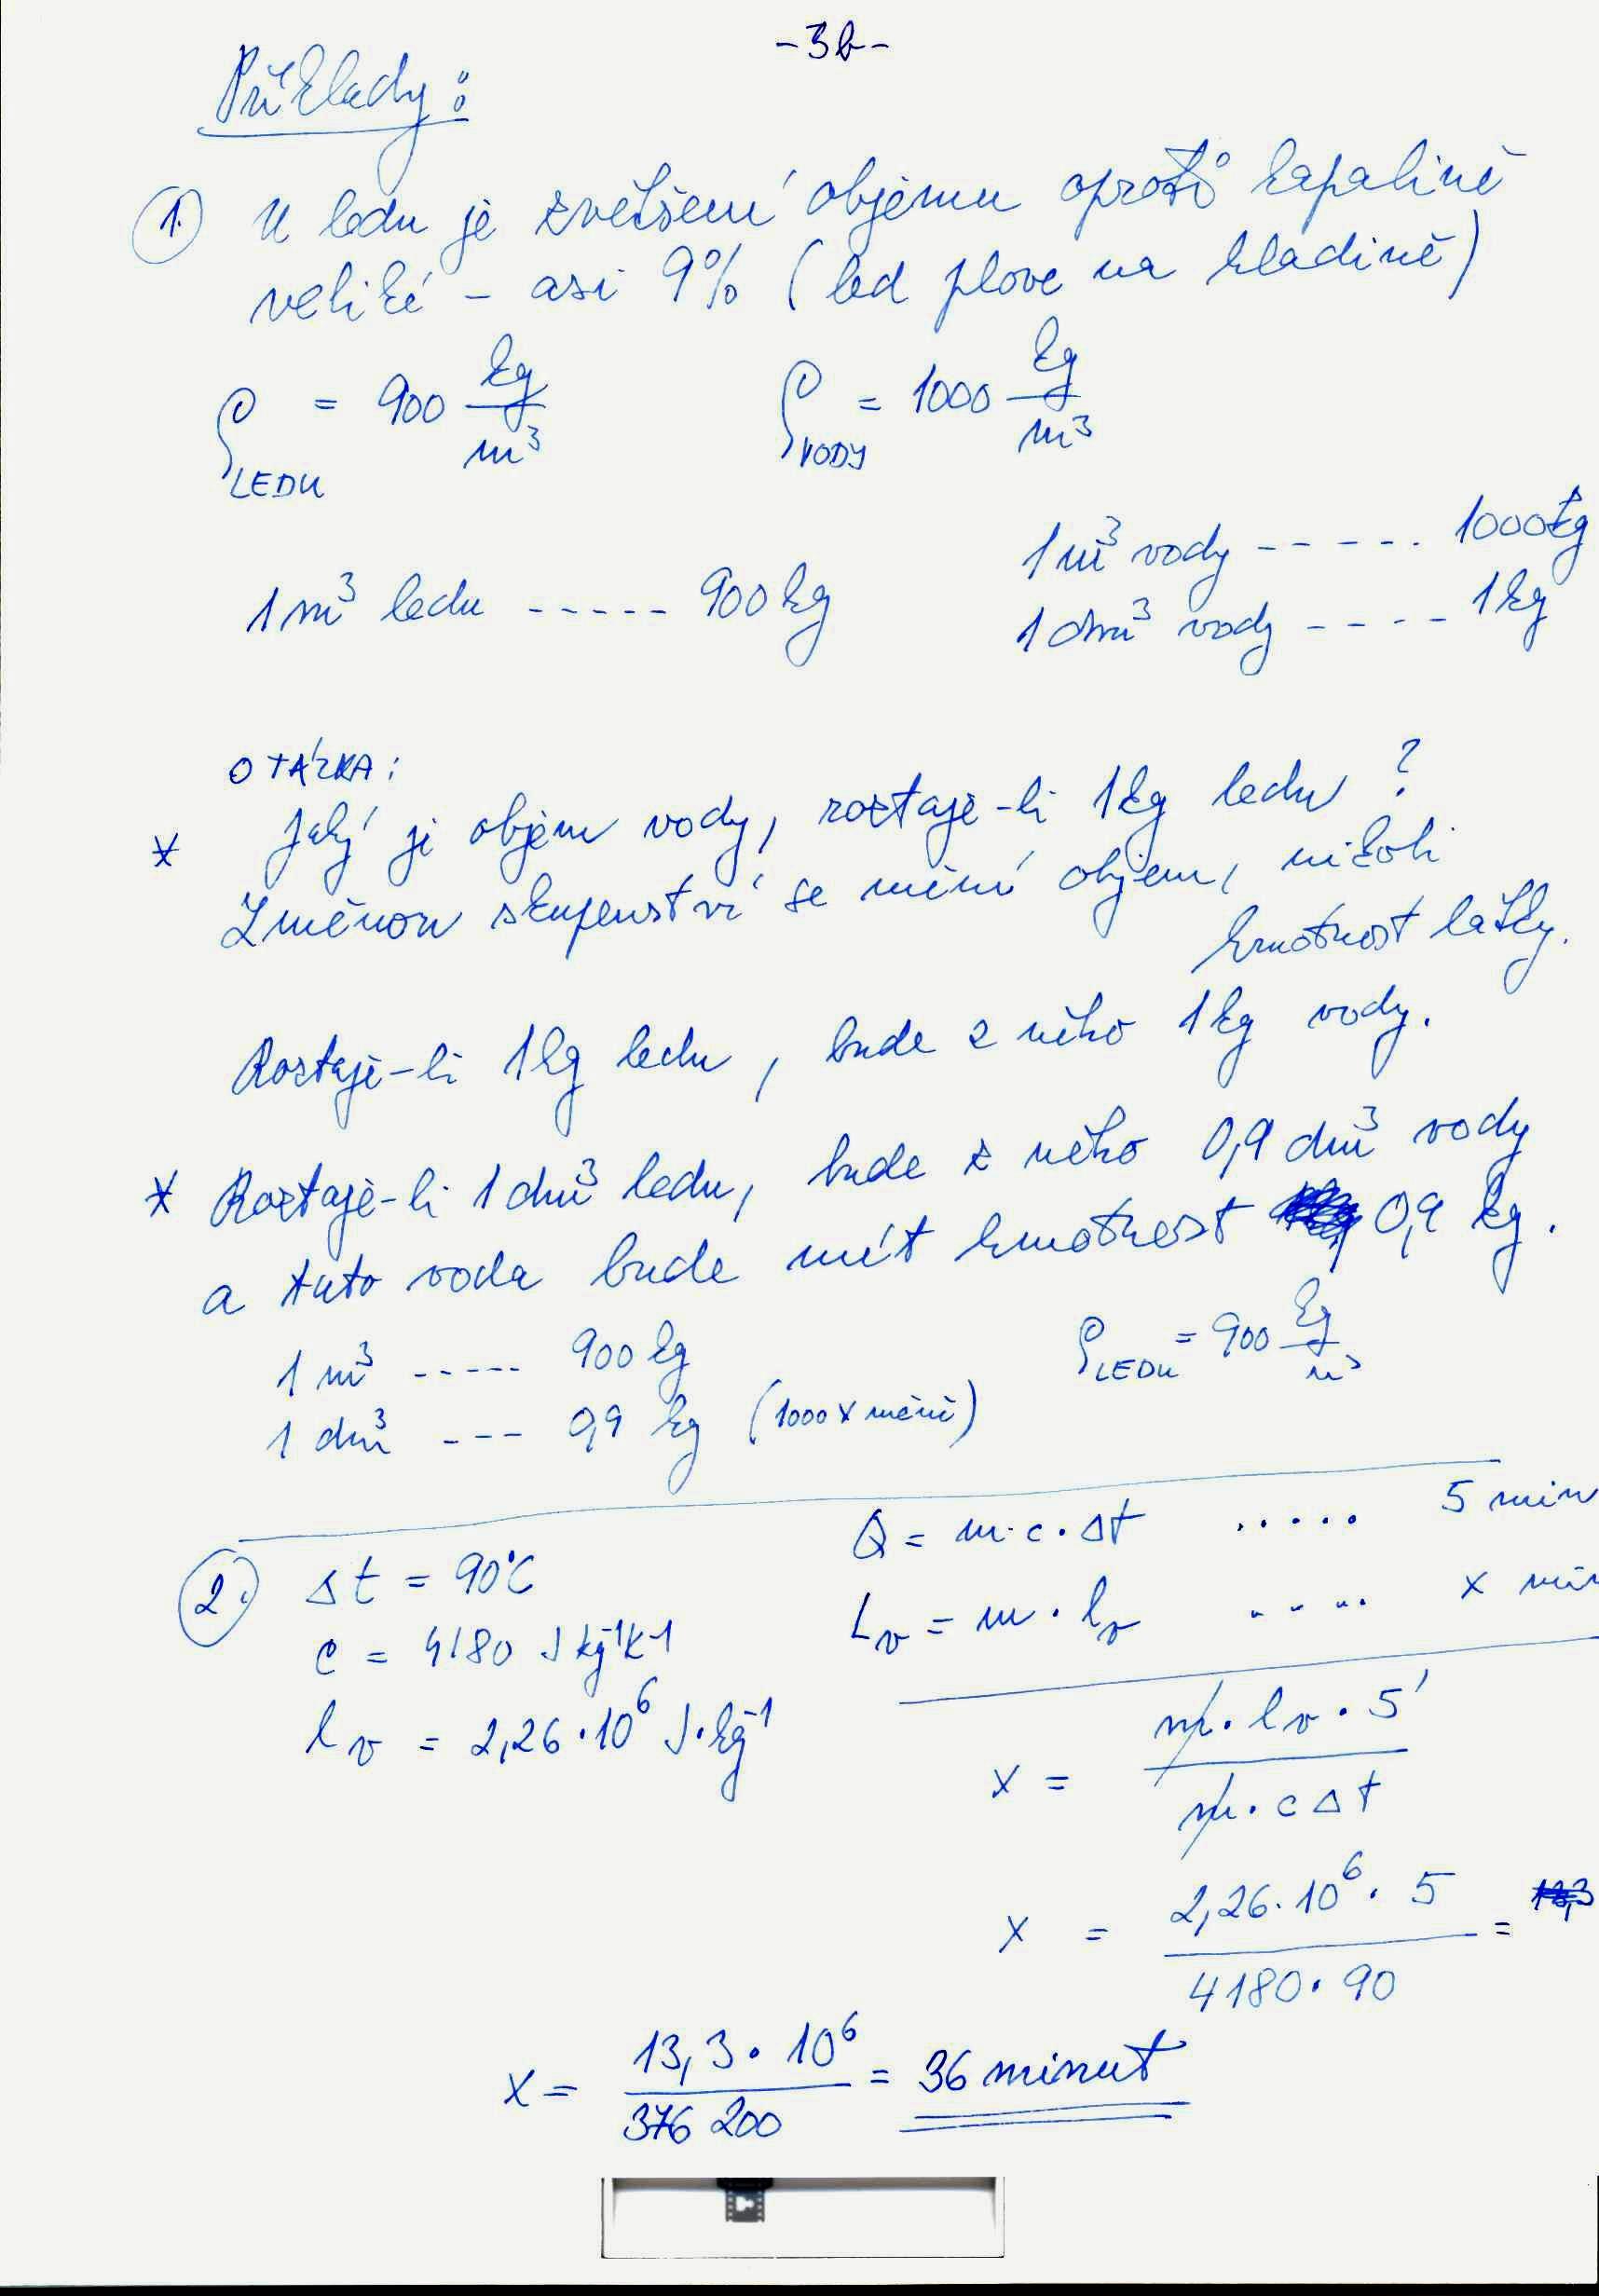 -3b-
Příklady:
1. U ledu je zvětšení objemu oproti kapalině
veliké - asi 9% (led plove na hladině)
ρ LEDU = 900 kg/m³ ρ VODY = 1000 kg/m³
1m³ vody ------ 1000kg
1m³ ledu ----- 900kg
1dm³ vody ---- 1kg
OTÁZKA:
* Jaký je objem vody, roztaje-li 1kg ledu?
Změnou skupenství se mění objem, nikoli
hmotnost látky.
Roztaje-li 1kg ledu, bude z něho 1kg vody.
* Roztaje-li 1dm³ ledu, bude z něho 0,9 dm³ vody
a tato voda bude mít hmotnost 0,9 kg.
1 m³ ----- 900 kg
ρ LEDU = 900 kg/m³
1 dm³ --- 0,9 kg (1000 x méně)
Q = m·c·Δt ..... 5 min
2. Δt = 90°C
Lv = m·lv ..... x min
c = 4180 J kg⁻¹K⁻¹
lv = 2,26·10⁶ J·kg⁻¹
x = m·lv·5' / m·cΔt
x = 2,26·10⁶·5 / 4180·90 =
x = 13,3·10⁶ / 376 200 = 36 minut